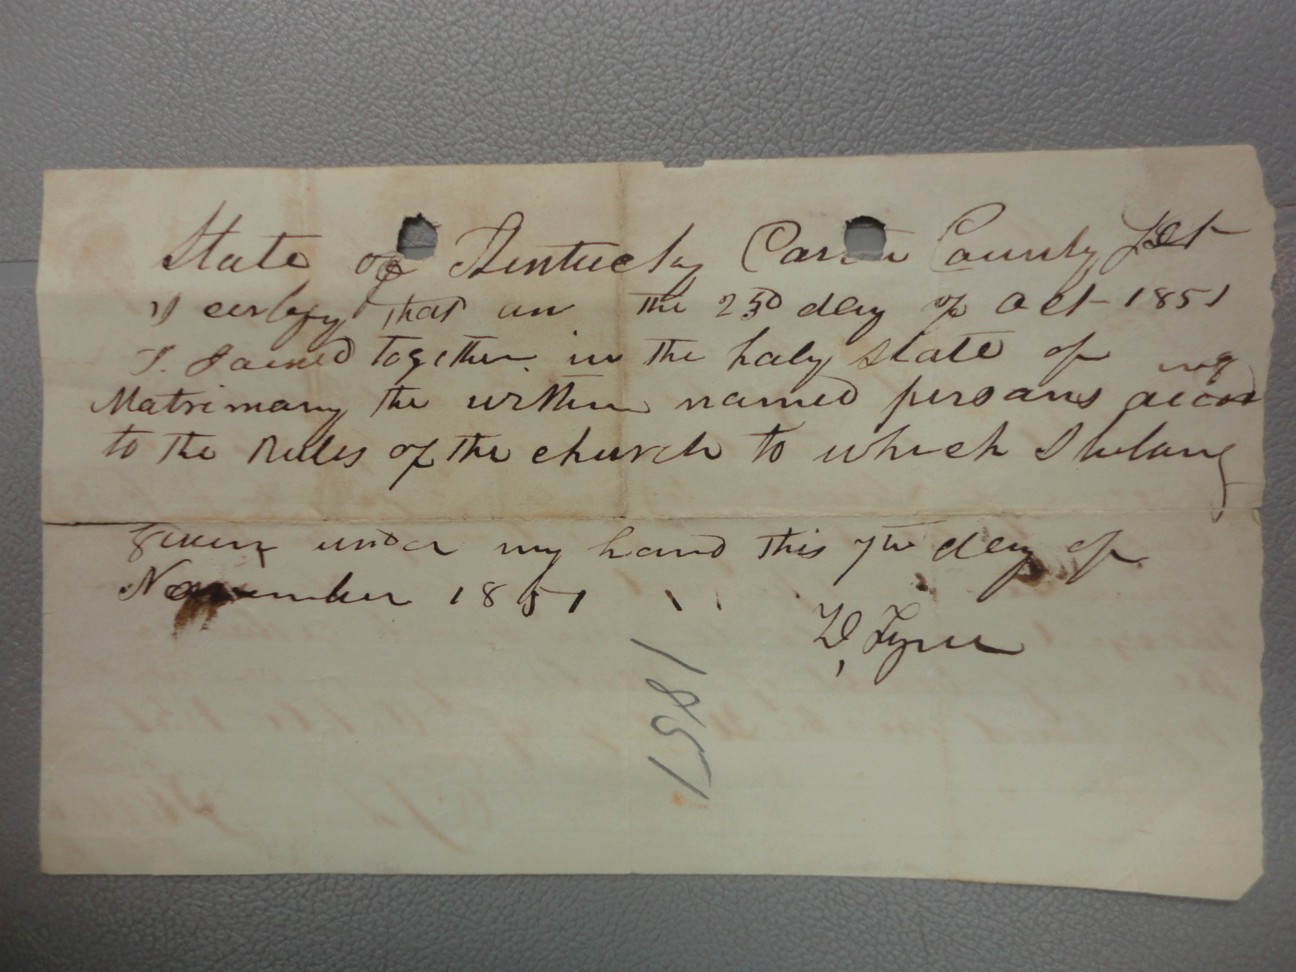 State of Kentucky Carter County Sct
I certify that on the 23D day of Oct 1851
I Joined together in the holy state of
Matrimony the within named persons according
to the Rules of the church to which I belong
given under my hand this 7th day of
November 1851
1851